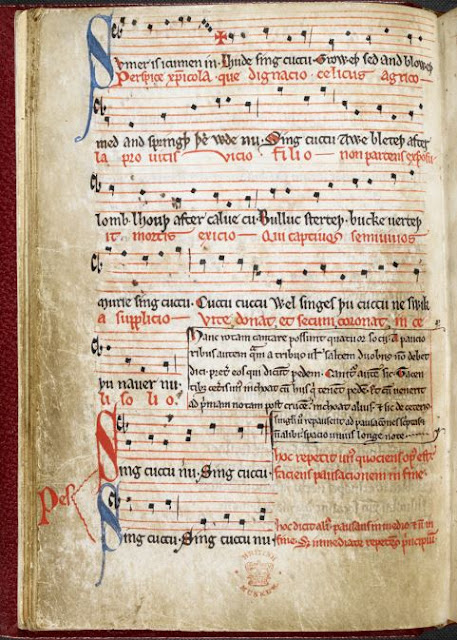 Svmer is icumen in· Lhude sing cuccu· Groweþ sed and bloweþ
Perspice xp̄icola· que dignacio· celicus agrico
med and springþ þe wde nu· Sing cuccu Awe bleteþ after
la pro uitis vicio filio non parcens exposu
lomb· lhouþ after calue cu· Bulluc sterteþ· bucke uerteþ
it mortis exicio Qui captiuos semiuiuos
murie sing cuccu· Cuccu cuccu Wel singes þu cuccu ne swik
a supplicio Vite donat et secum coronat in ce
þu nauer nu·
li solio·
Hanc rotam cantare possunt quatuor socii· A paucio
ribus autem qm̄ a tribus ul̄ saltem duobus nō debet
dici· pret̄ eos qui dicunt pedem· Canit̄ aut̄ sic· Tacen
tibȝ cet̄is unus inchoat cū hiis q̄ tenēt pedē· et cū uenerit
ad p̄mam notam post crucē· inchoat alius· et sic de ceteris·
singli ū repausent ad
spacio unius longe note·
Sing cuccu nu· Sing cuccu·
hoc repetit un̄ quociens op̄ est·
faciens pausacionem in fine·
Pes
Sing cuccu· Sing cuccu nu·
hoc dicit ali pausans in medio et n̄ in
fine· Sȝ immediate repetens p̄ncipiū·
BRITISH
MUSEUM